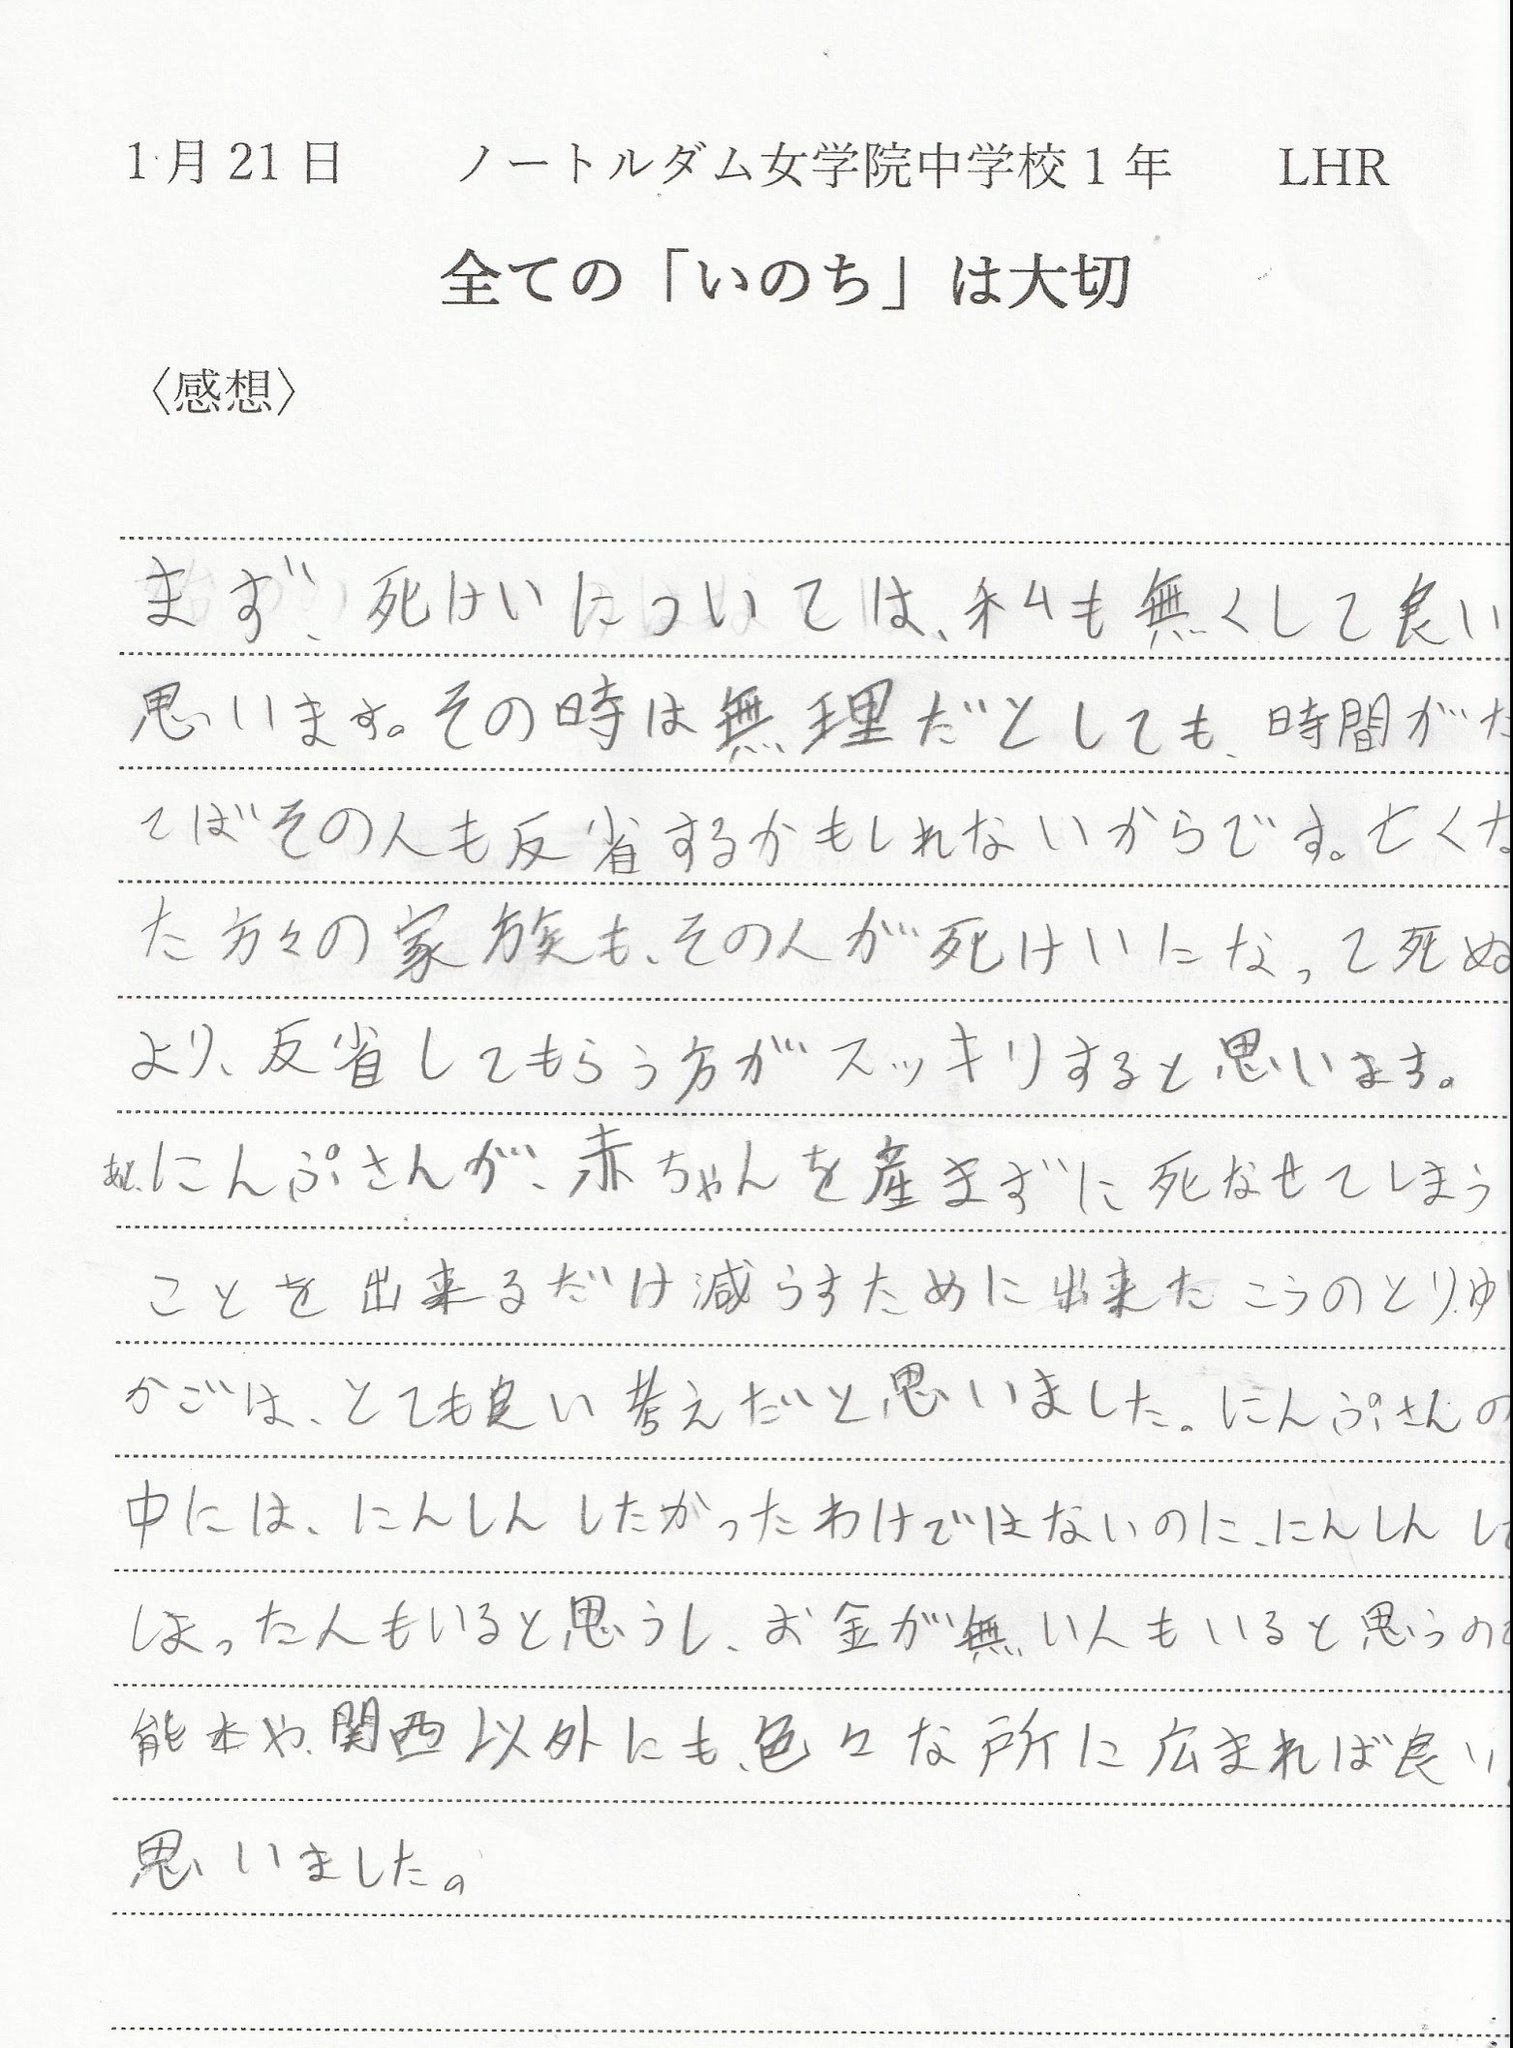 1月21日 ノートルダム女学院中学校1年 LHR
全ての「いのち」は大切
〈感想〉
まず、死けいについては、私も無くして良い
思います。その時は無理だとしても、時間がた
てばその人も反省するかもしれないからです。亡くな
た方々の家族も、その人が死けいになって死ぬ
より、反省してもらう方がスッキリすると思います。
あと、にんぷさんが、赤ちゃんを産まずに死なせてしまう
ことを出来るだけ減らすために出来たこうのとりゆ
かごは、とても良い考えだと思いました。にんぷさんの
中には、にんしんしたかったわけではないのに、にんしんし
しまった人もいると思うし、お金が無い人もいると思うので
熊本や、関西以外にも、色々な所に広まれば良い
思いました。